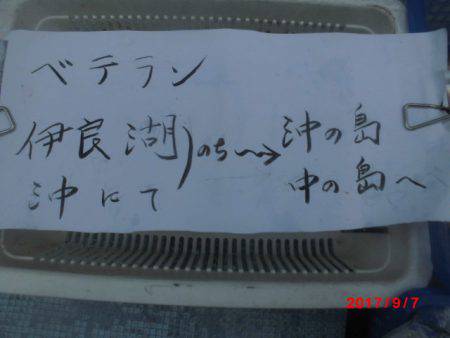 ベテラン
伊良湖
沖にて
)のち〜〜→
沖の島
中の島へ
2017/9/7